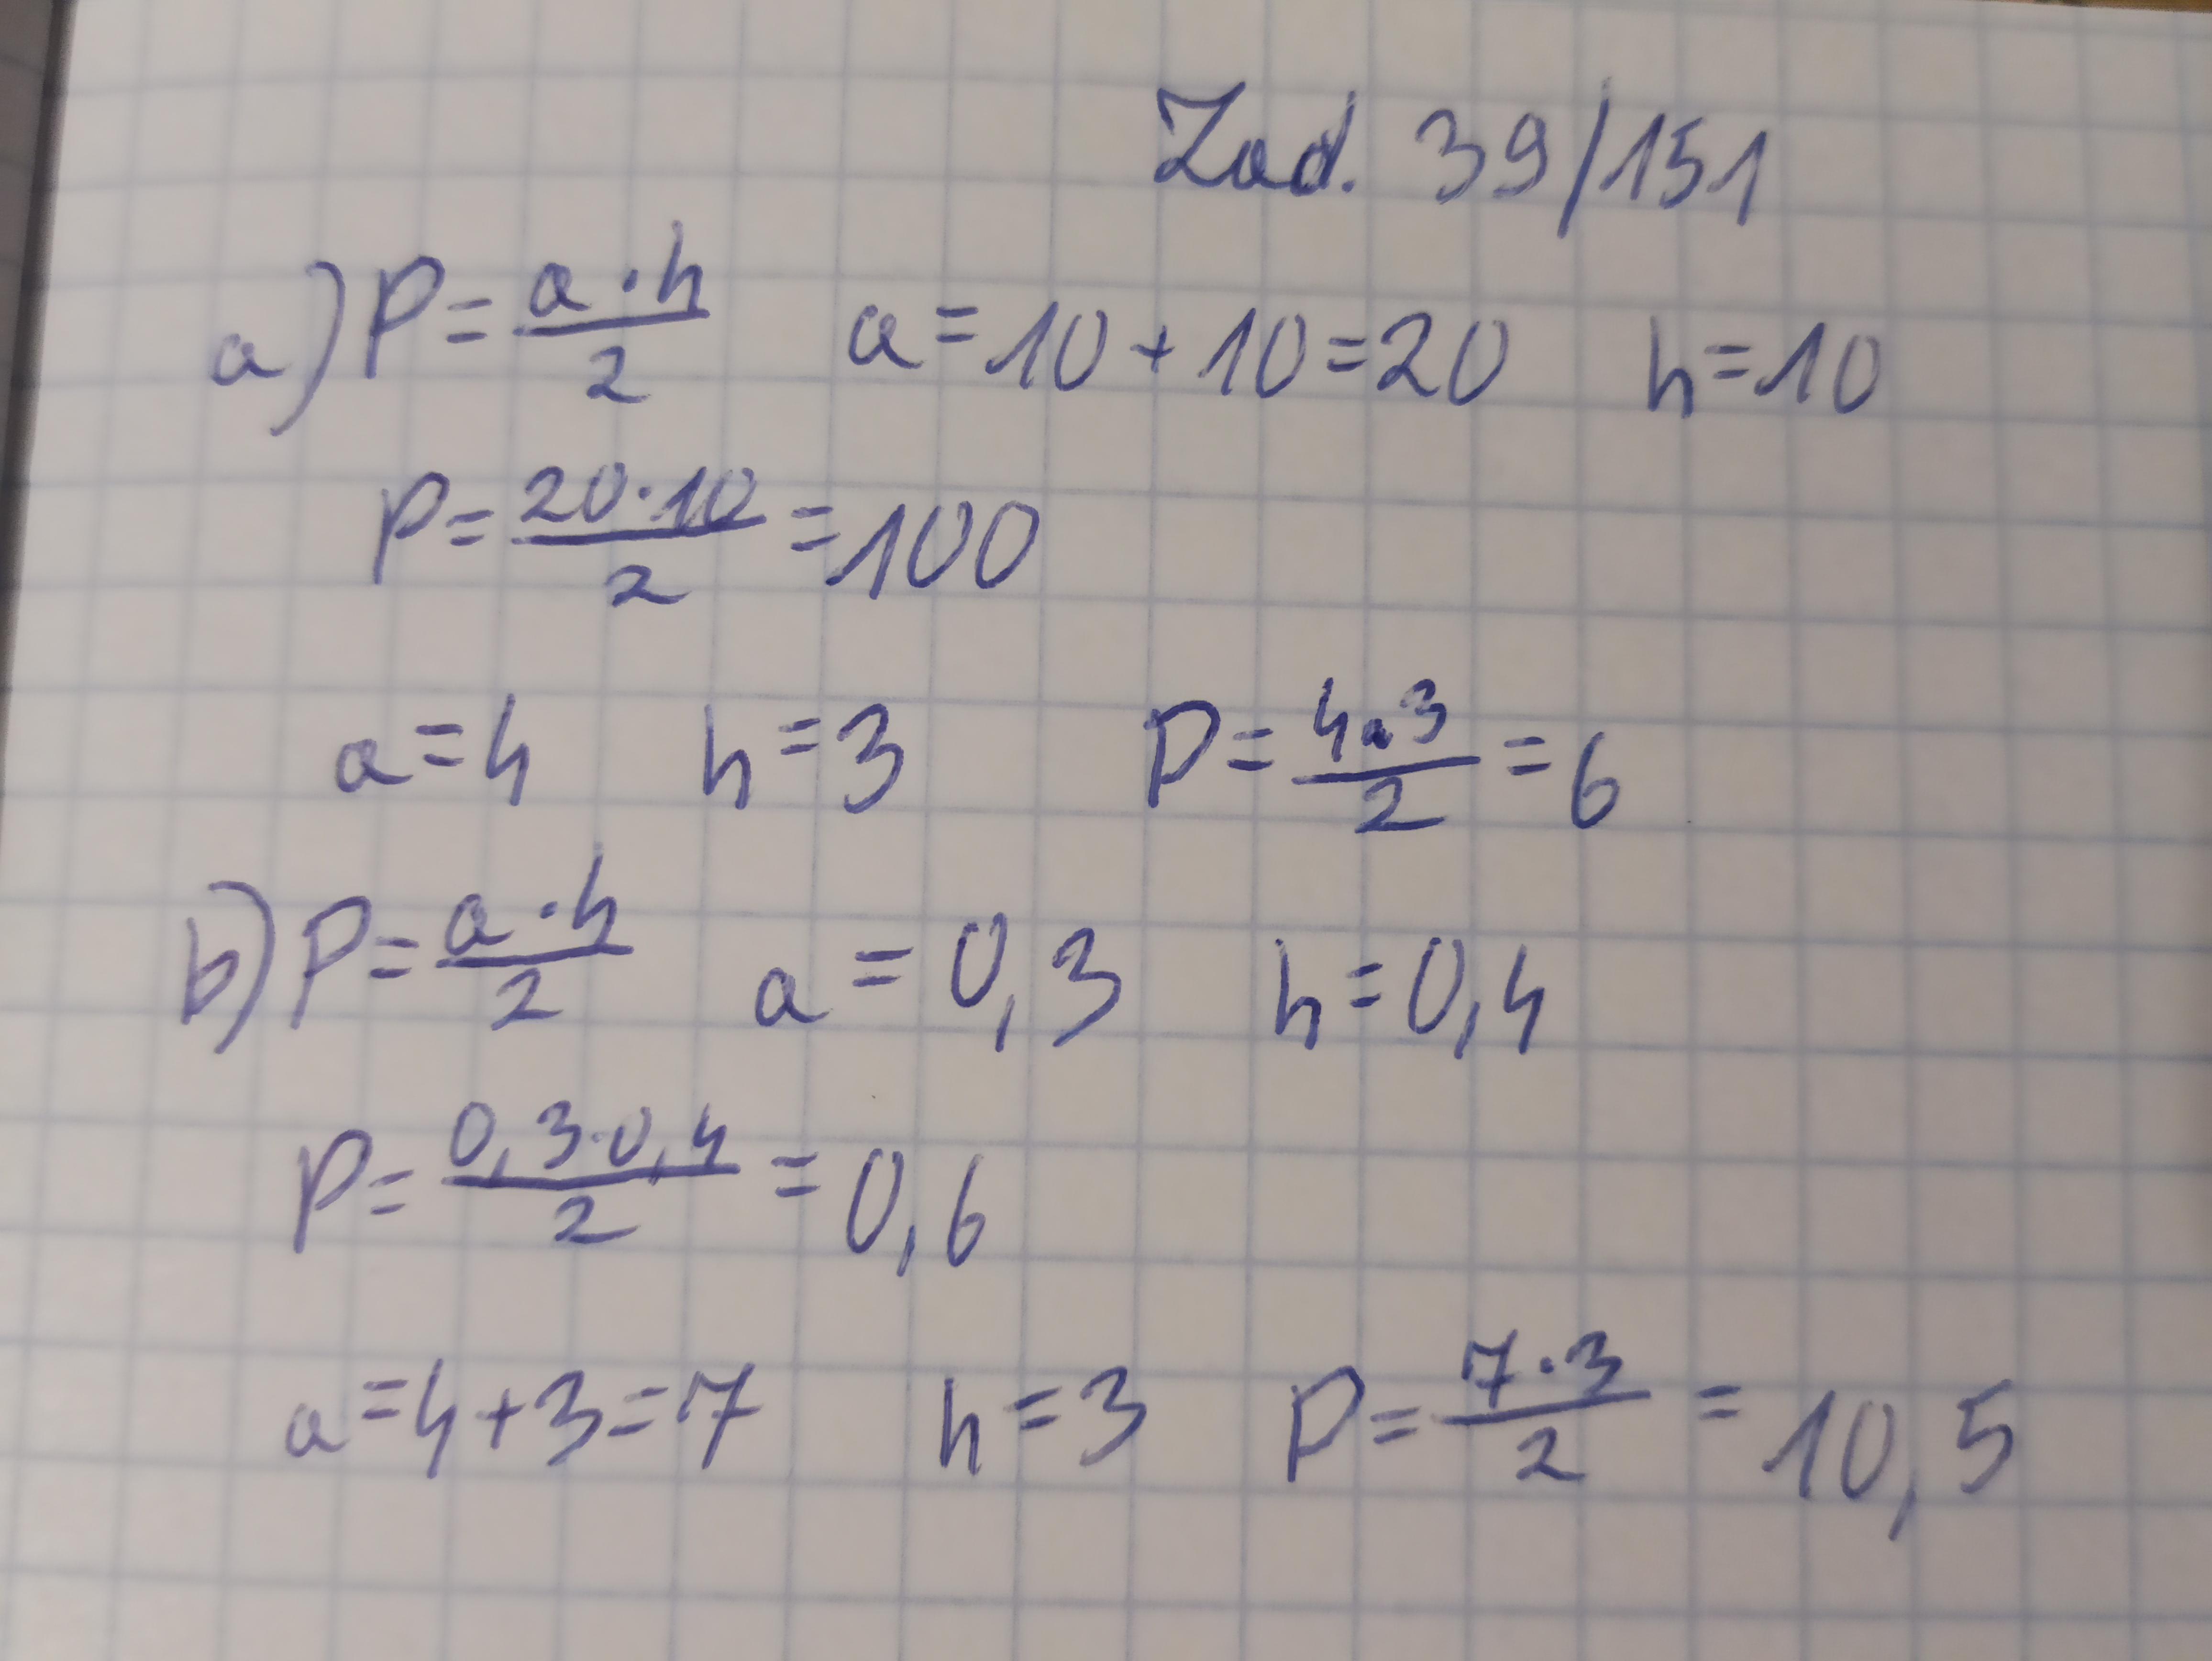 Zad. 39/151
a) P = a·h/2 a = 10 + 10 = 20 h = 10
P = 20·10/2 = 100
a = 4 h = 3 P = 4·3/2 = 6
b) P = a·h/2 a = 0,3 h = 0,4
P = 0,3·0,4/2 = 0,6
a = 4 + 3 = 7 h = 3 P = 7·3/2 = 10,5